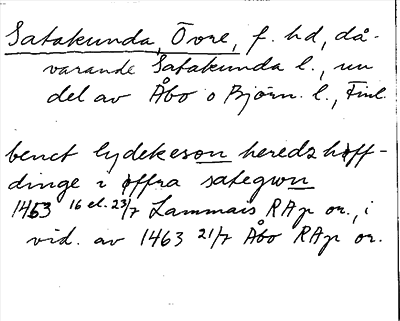 Satakunda, Övre, f. hd, då-
varande Satakunda l., nu
del av Åbo o Björn. l., Finl.
benct lydekeson heredz høff-
dinge i øffra sategwn
1453 16 el. 23/7 Lammais RAp or., i
vid. av 1463 21/7 Åbo RAp or.